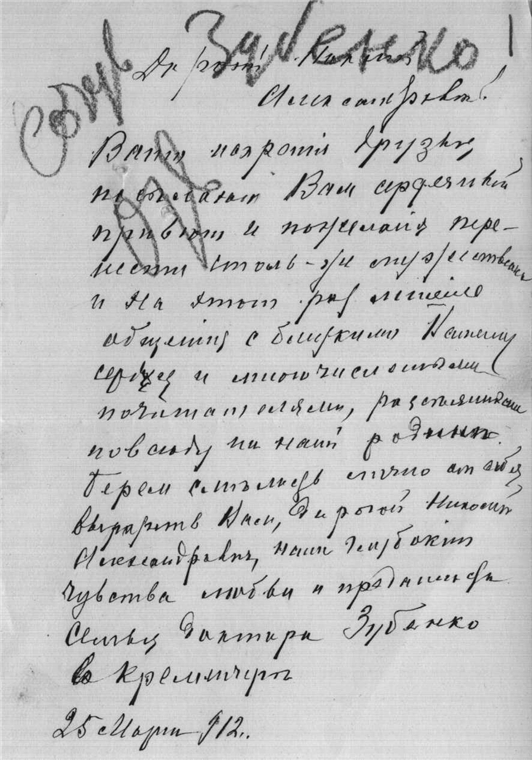 Зубенко!
Дорогой
Александровичъ!
Ваши полтавскіе друзья
посылаютъ Вамъ сердечный
привѣтъ и пожеланія пере-
нести столь-же мужественно
и на этотъ разъ лишеніе
общенія с близкими Вашему
сердцу и многочисленными
почитателями, разсѣянными
повсюду на нашей родинѣ.
Беремъ смѣлость лично отъ себя
выразить Вамъ, дорогой
Александровичъ, наши глубокія
чувства любви и преданности
Семья доктора Зубенко
в Кременчугѣ
25 Марта 912.